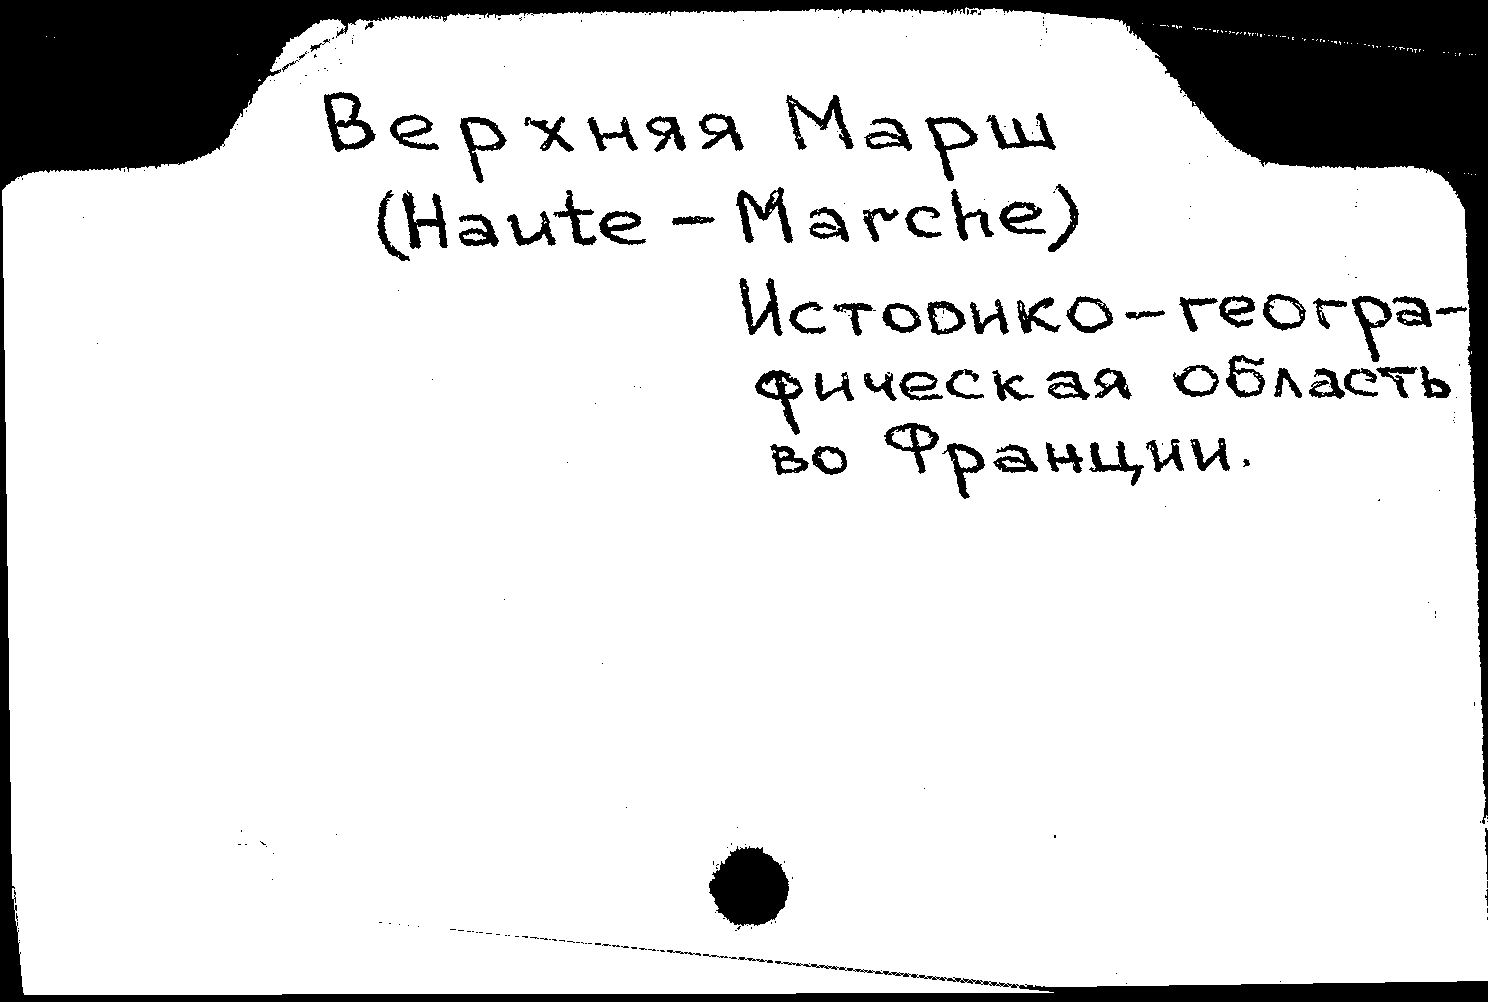 Верхняя Марш
(Haute-Marche)
Историко-геогра-
фическая область
во Франции.